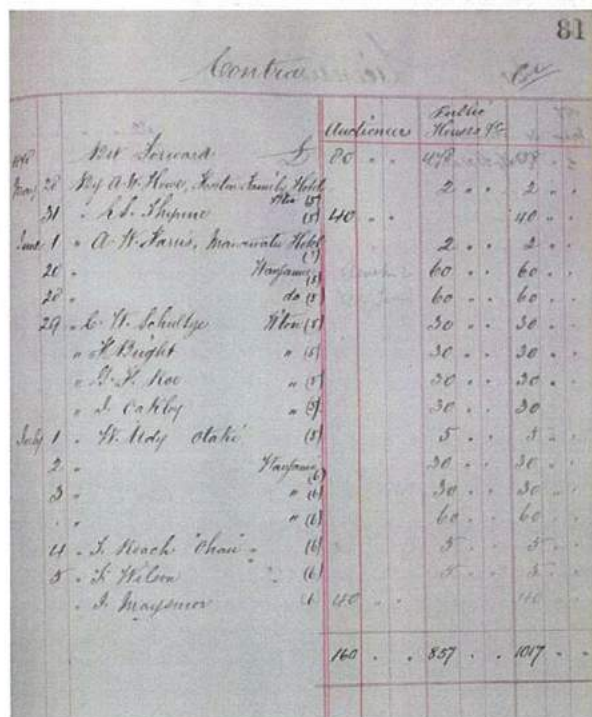 81
Contra Cr
Auctioneers Public Houses &c
1898 Bot Forward £ 80 " " 478 558
May 28 By A. W. Howe, Family Hotel 2 " " 2 " "
Wton (5)
31 " L. S. Thynne (5) 40 " " 40 " "
June 1 " A. W. Harris, Manawatu Hotel 2 " " 2 " "
(7)
20 " Wanganui (5) 60 " " 60 " "
28 " do (5) 60 " " 60 " "
29 " C. W. Schultze Wton (5) 30 " " 30 " "
" H Bright " (5) 30 " " 30 " "
" G. F. Roe " (5) 30 " " 30 " "
" J. Oakley " (5) 30 " " 30
July 1 " W. Udy Otaki (5) 5 " " 5 " "
2 " Wanganui (6) 30 " " 30 " "
3 " " (6) 30 " " 30 " "
" " " (6) 60 " " 60 " "
4 " J. Roach (6) 5 " " 5 " "
5 " F. Wilson (6) 5 " " 5 " "
" J. Maysmor 6 40 " " 40 " "
160 " " 857 " " 1017 " "